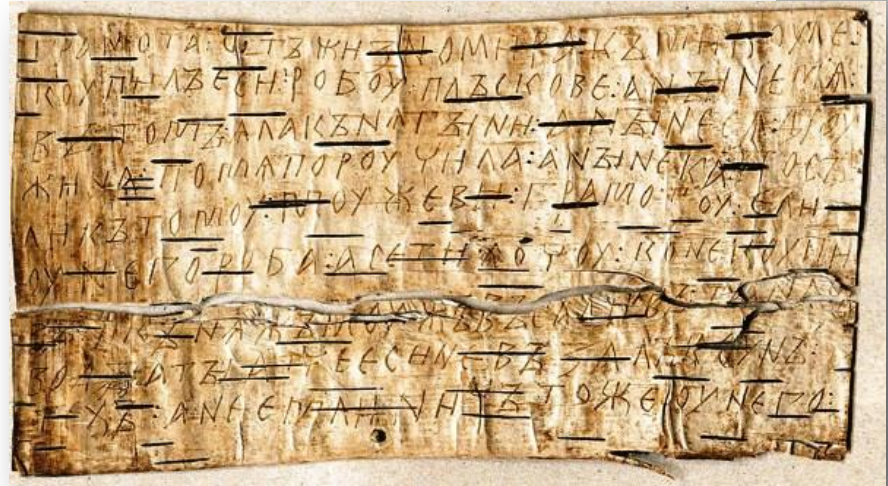 ГРАМОТА : ѠТЪ ЖИЗНОМИРА : КЪ МИКОУЛЕ :
КОУПИЛЪ ЕСИ : РОБОУ : ПЛЪСКОВЕ : А НꙐНЕ МѦ :
ВЪ ТОМЪ : ѦЛА КЪНѦГꙐНИ : А НꙐНЕ СѦ ДРОУ
ЖИНА : ПО МѦ ПОРОУЧИЛА : А НꙐНЕ КА : ПОСЪ
ЛИ КЪ ТОМОУ : МОУЖЕВИ : ГРАМОТОУ : Е ЛИ
ОУ НЕГО РОБА : А СЕ ТИ ХОЧОУ : КОНЕ КОУПИ
КЪНѦЖЪ МОУЖЪ ВЪСАДИВЪ : ТА НА СЪ
ВОДꙐ : А ТꙐ АТЧЕ ЕСИ НЕ ВЪЗАЛЪ КОУНЪ :
ТЕХЪ : А НЕ ЕМЛИ : НИЧЪТО ЖЕ ОУ НЕГО :